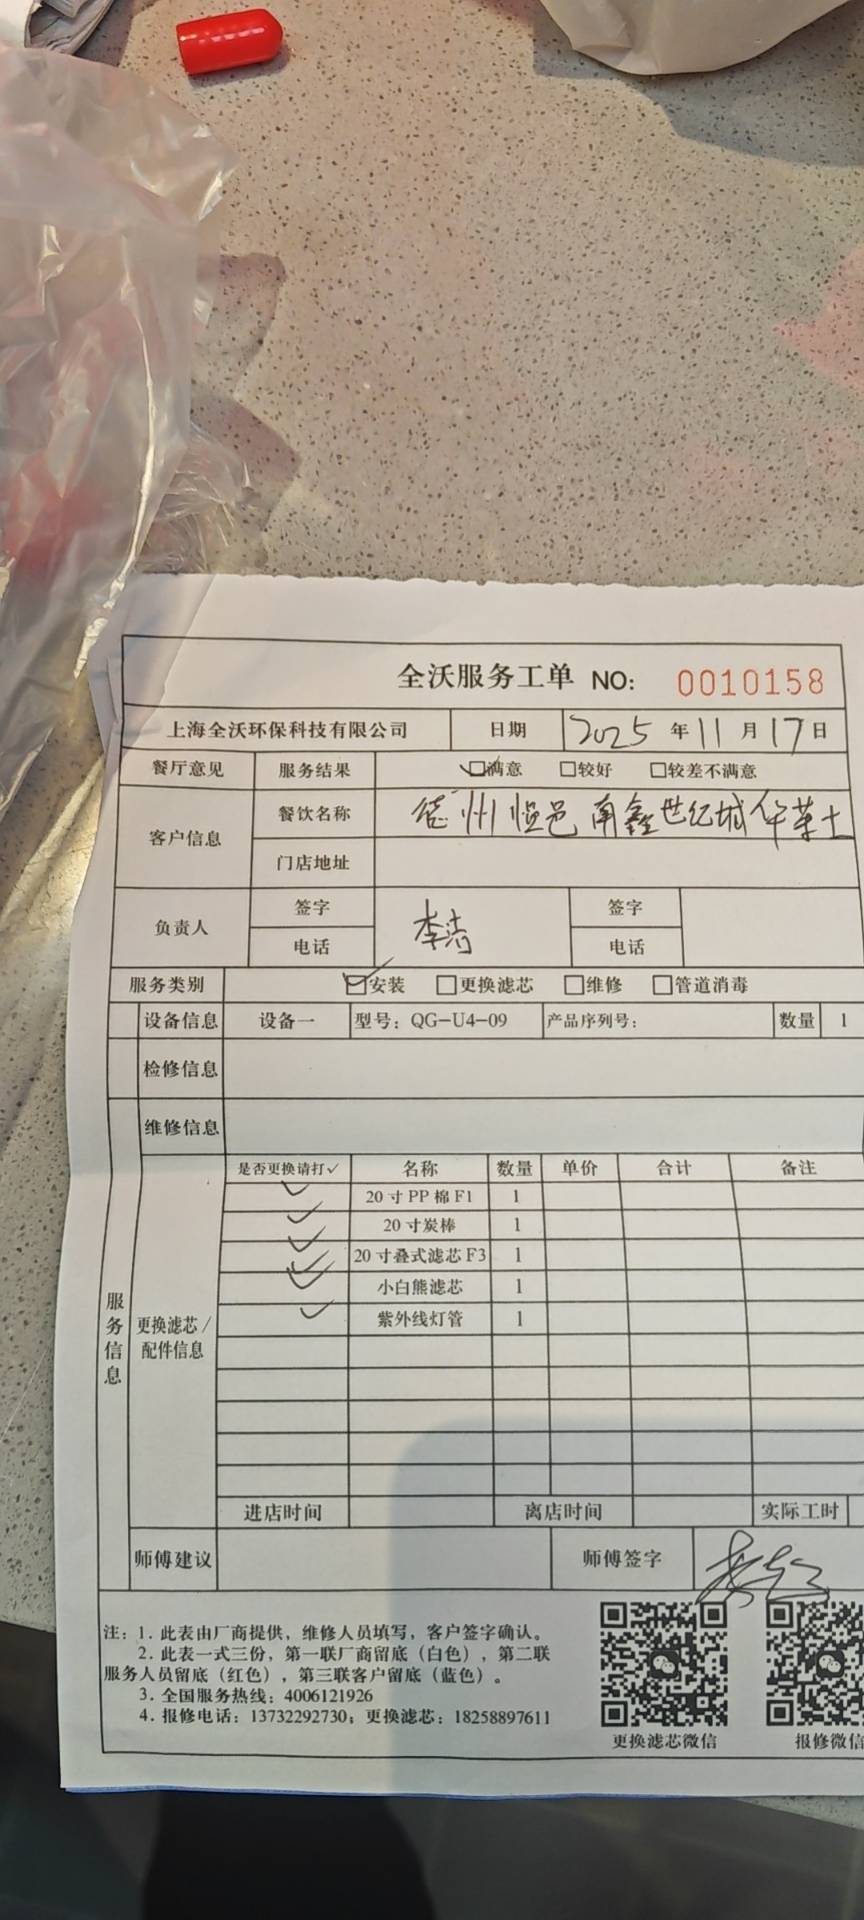 全沃服务工单 NO: 0010158
上海全沃环保科技有限公司 日期 2025年11月17日
餐厅意见 服务结果 ☑满意 □较好 □较差不满意
客户信息 餐饮名称 德州恒邑南鑫世纪城华莱士
门店地址
负责人 签字 李浩 签字
电话 电话
服务类别 ☑安装 □更换滤芯 □维修 □管道消毒
设备信息 设备一 型号：QG-U4-09 产品序列号： 数量 1
检修信息
维修信息
服务信息
更换滤芯/配件信息
是否更换请打✓ 名称 数量 单价 合计 备注
✓ 20寸PP棉F1 1
✓ 20寸炭棒 1
✓ 20寸叠式滤芯F3 1
✓ 小白熊滤芯 1
✓ 紫外线灯管 1
进店时间 离店时间 实际工时
师傅建议 师傅签字
注：1. 此表由厂商提供，维修人员填写，客户签字确认。
2. 此表一式三份，第一联厂商留底（白色），第二联
服务人员留底（红色），第三联客户留底（蓝色）。
3. 全国服务热线：4006121926
4. 报修电话：13732292730；更换滤芯：18258897611
更换滤芯微信 报修微信